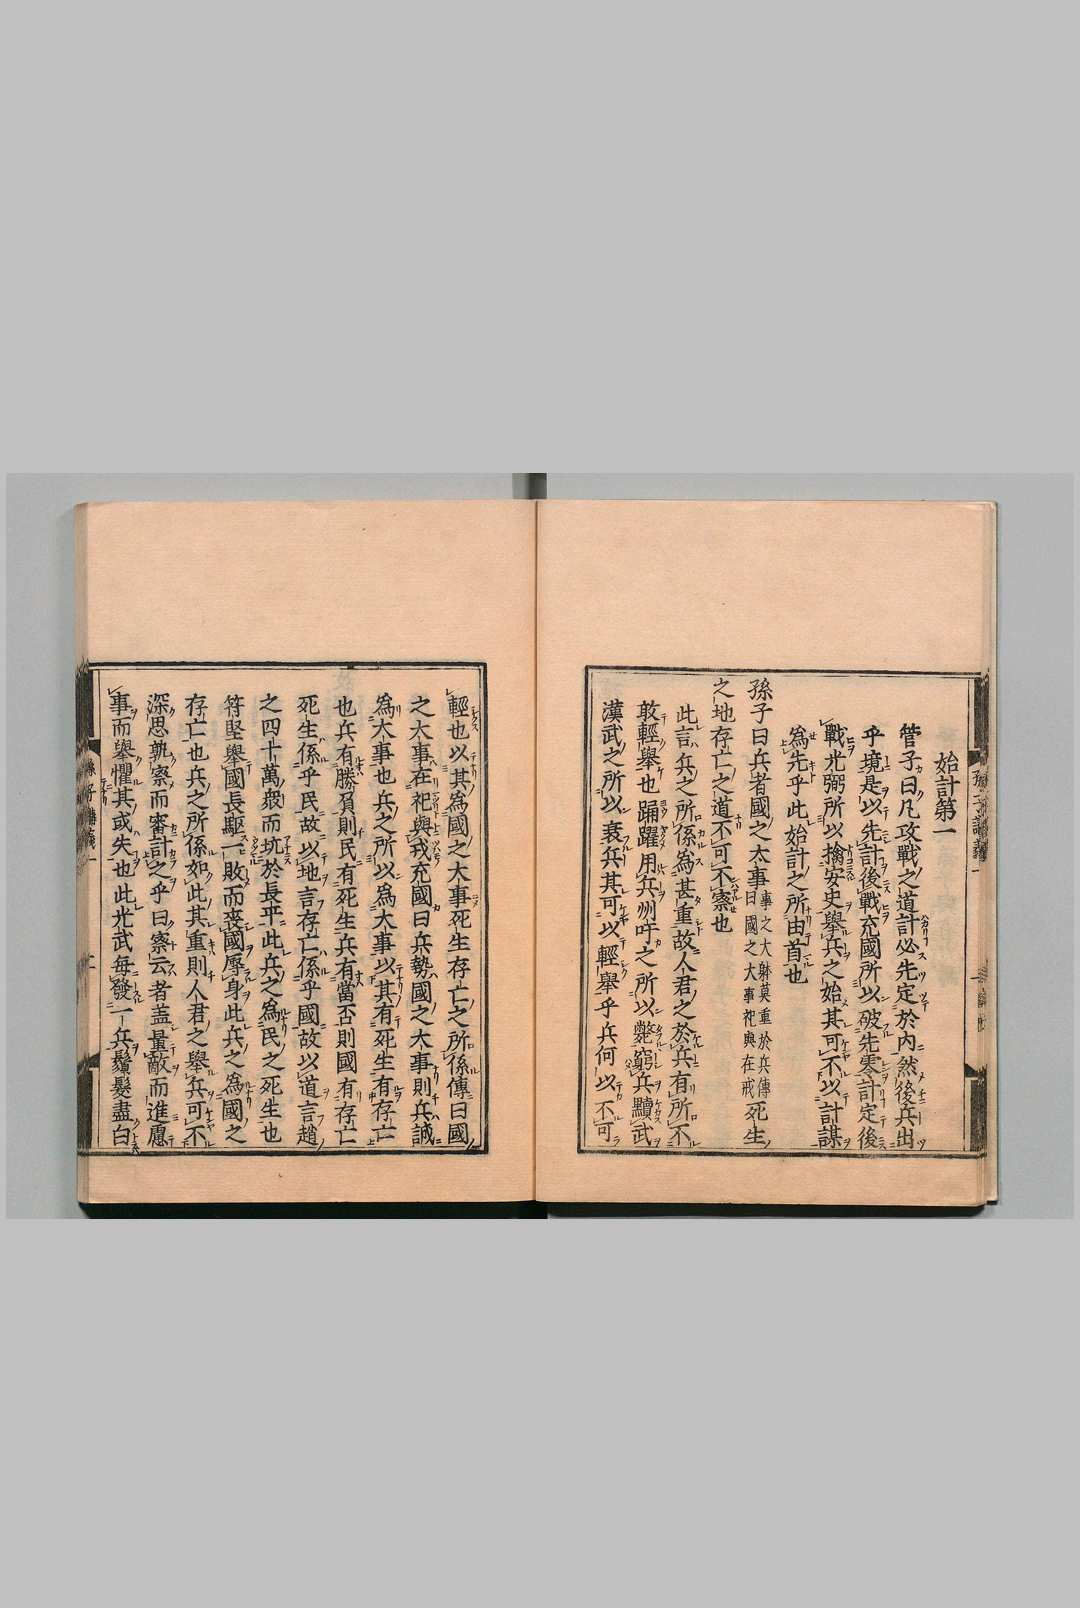 始計第一
管子曰凡攻戰之道計必先定於內然後兵出
乎境是以先計後戰充國所以破先零計定後
戰光弼所以擒安史舉兵之始其可不以計謀
為先乎此始計之所由首也
孫子曰兵者國之大事事之大躰莫重於兵傳曰國之大事祀與在戒死生
之地存亡之道不可不察也
此言兵之所係為甚重故人君之於兵有所不
敢輕舉也踊躍用兵州吁之所以斃窮兵黷武
漢武之所以衰兵其可以輕舉乎兵何以不可
輕也以其為國之大事死生存亡之所係傳曰國
之大事在祀與戎充國曰兵勢國之大事則兵誠
為大事也兵之所以為大事以其有死生有存亡
也兵有勝負則民有死生兵有當否則國有存亡
死生係乎民故以地言存亡係乎國故以道言趙
之四十萬衆而坑於長平此兵之為民之死生也
符堅舉國長驅一敗而喪國辱身此兵之為國之
存亡也兵之所係如此其重則人君之舉兵可不
深思孰察而審計之乎曰察云者盖量敵而進慮
事而舉懼其或失也此光武每發一兵鬚髮盡白